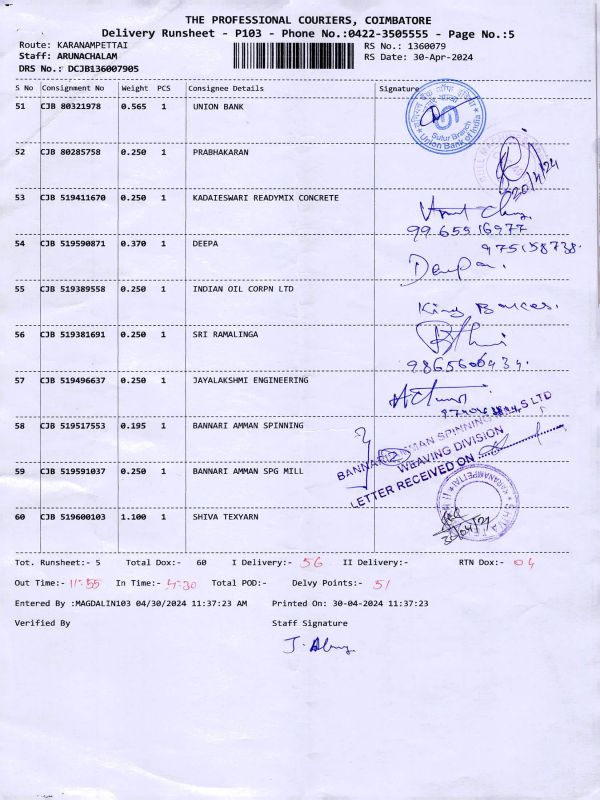 THE PROFESSIONAL COURIERS, COIMBATORE
Delivery Runsheet - P103 - Phone No.:0422-3505555 - Page No.:5
Route: KARANAMPETTAI
RS No.: 1360079
Staff: ARUNACHALAM
RS Date: 30-Apr-2024
DRS No.: DCJB136007905
S No Consignment No Weight PCS Consignee Details Signature
51 CJB 80321978 0.565 1 UNION BANK
Sulur Branch
Union Bank of India
52 CJB 80285758 0.250 1 PRABHAKARAN
53 CJB 519411670 0.250 1 KADAIESWARI READYMIX CONCRETE
99 65516977
54 CJB 519590871 0.370 1 DEEPA
975158738.
55 CJB 519389558 0.250 1 INDIAN OIL CORPN LTD
56 CJB 519381691 0.250 1 SRI RAMALINGA
57 CJB 519496637 0.250 1 JAYALAKSHMI ENGINEERING
58 CJB 519517553 0.195 1 BANNARI AMMAN SPINNING
BANNARI AMMAN SPINNING MILLS LTD
WEAVING DIVISION
LETTER RECEIVED ON
59 CJB 519591037 0.250 1 BANNARI AMMAN SPG MILL
60 CJB 519600103 1.100 1 SHIVA TEXYARN
KARANAMPETTAI
Tot. Runsheet:- 5 Total Dox:- 60 I Delivery:- 56 II Delivery:- RTN Dox:- 04
Out Time:- 11:55 In Time:- 4:30 Total POD:- Delvy Points:- 51
Entered By :MAGDALIN103 04/30/2024 11:37:23 AM Printed On: 30-04-2024 11:37:23
Verified By Staff Signature